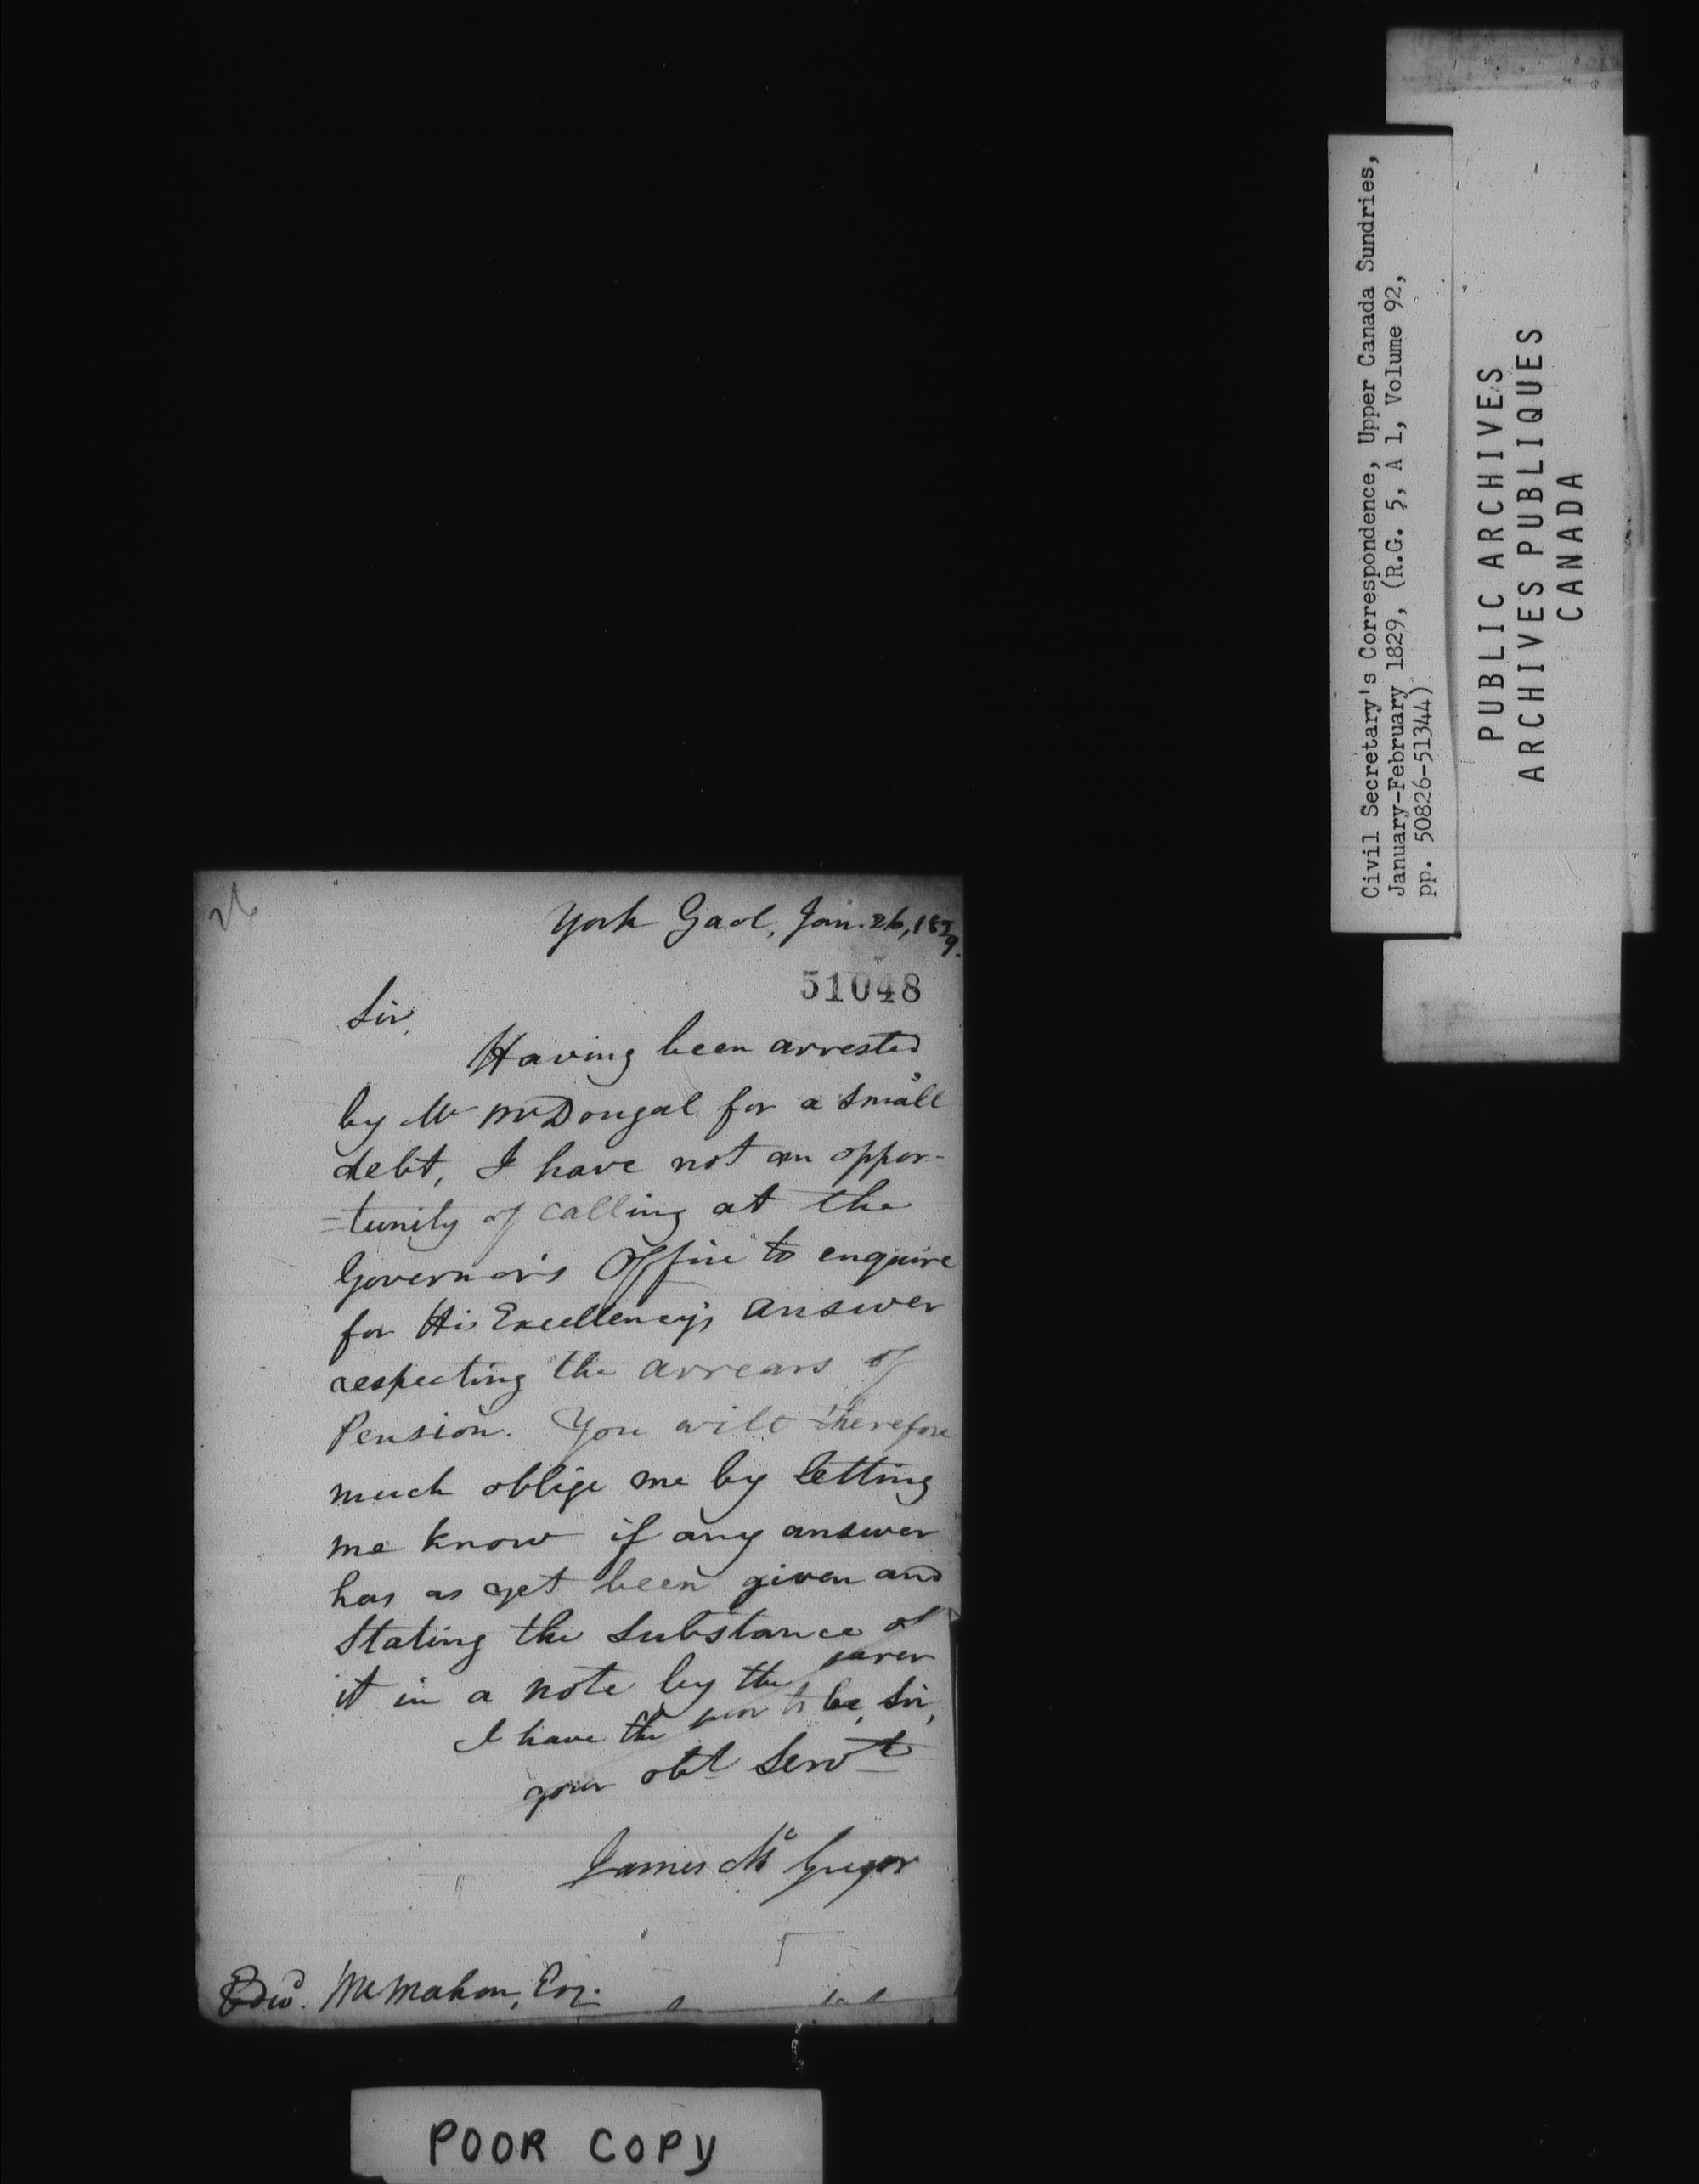 26
York Gaol, Jan. 26, 1829.
51048
Sir,
Having been arrested
by Mr McDougal for a small
debt, I have not an oppor-
=tunity of calling at the
Governor's Office to enquire
for His Excellency's answer
respecting the arrears of
Pension. You will therefore
much oblige me by letting
me know if any answer
has as yet been given and
stating the substance of
it in a note by the
I have the to be, Sir,
your obt Servt
James McGregor
Edwd. McMahon, Esq.
POOR COPY
Civil Secretary's Correspondence, Upper Canada Sundries,
January-February 1829, (R.G. 5, A 1, Volume 92,
pp. 50826-51344)
PUBLIC ARCHIVES
ARCHIVES PUBLIQUES
CANADA